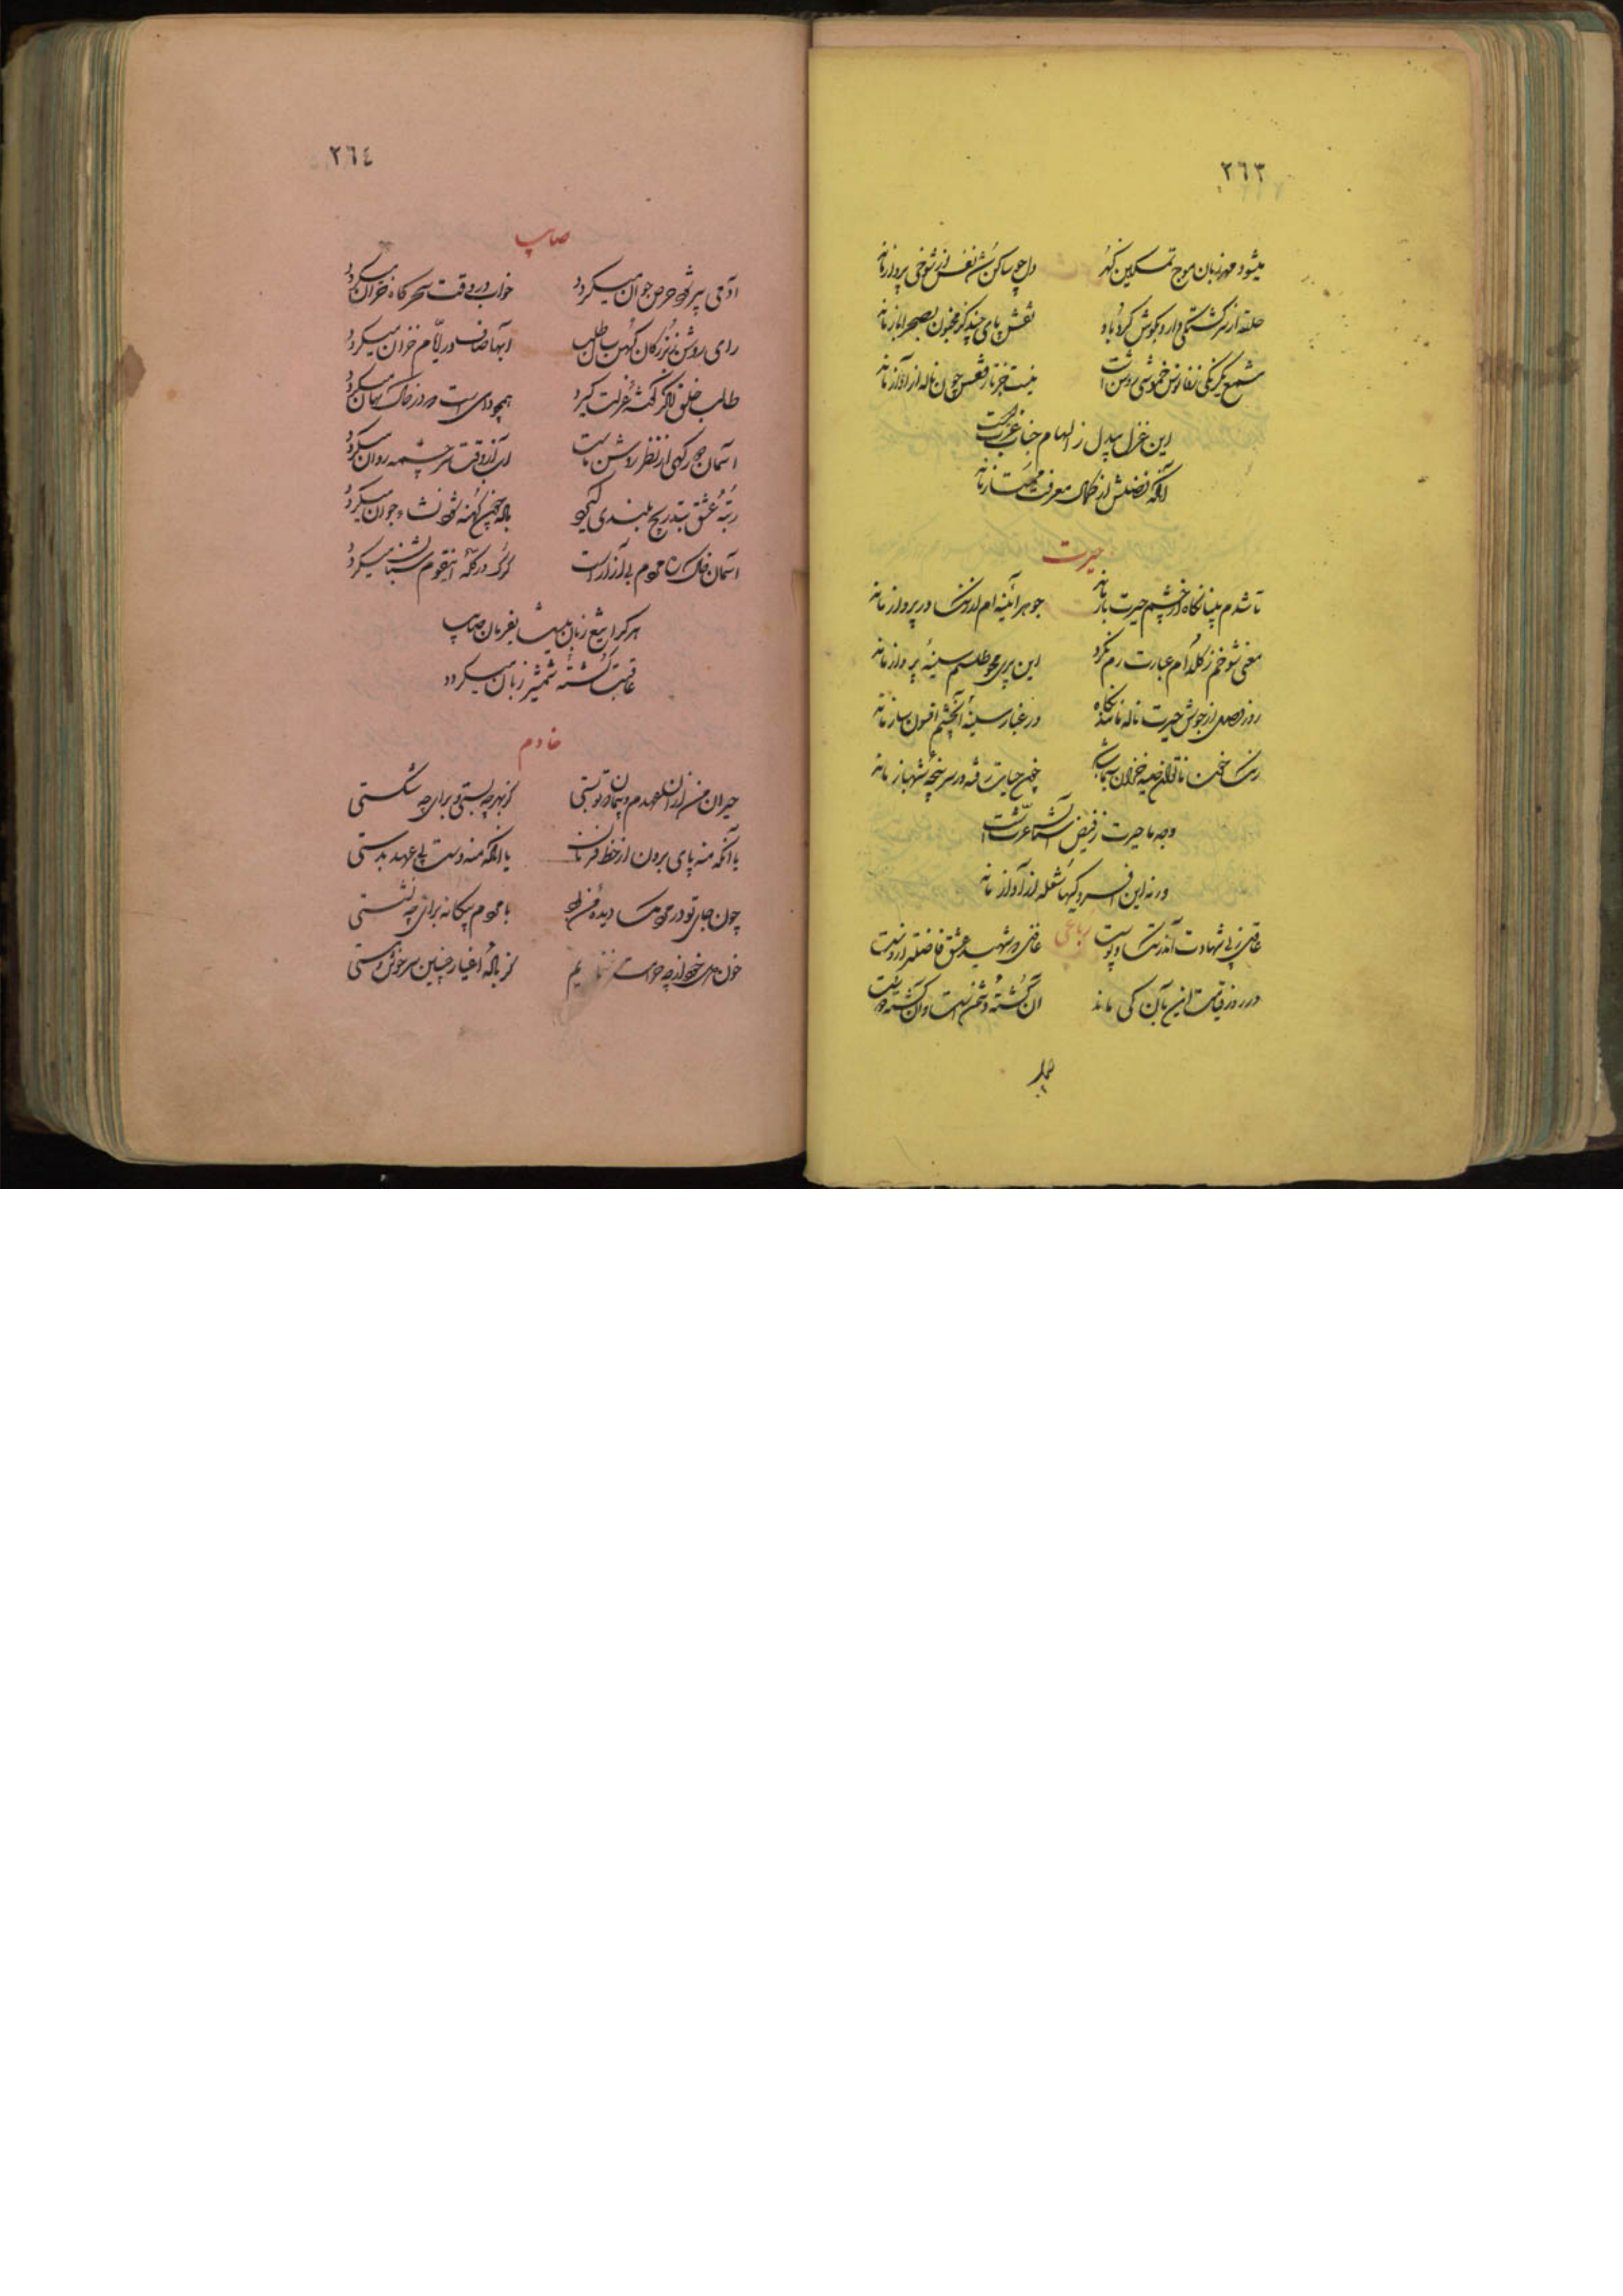 ٢٦٣
میشود مهر زبان موج تمکین گهر
دل چو ساکن شد نفس از شوخی پرواز ماند
حلقه از سرگشتگی دارد بگوش گردباد
نقش پای چند کز مجنون بصحرا باز ماند
شمع یکرنگی ز فانوس خموشی روشن است
نیست جز تار نفس چون ناله از آواز ماند
این غزل بیدل ز الهام جناب عزت است
آنکه فضلش از کمال معرفت ممتاز ماند
حیرت
تا شدم بینا نگاه از چشم حیرت باز ماند
جوهر آئینه ام از رنگ در پرواز ماند
معنی شوخم ز کلدام عبارت رم نکرد
این پری محو طلسم سینهٔ پر راز ماند
روز وصل از جوش حیرت ناله ماند نگاه
در غبار سینه آن چشم افسون ساز ماند
رنگ خون ناتوان صید خزان سیماست
خون حیایت رفته در سرپنجه شهباز ماند
وجد ما حیرت ز فیض آتش عزت است
ورنه این افسردگیها شعله از آواز ماند
رباعی
غازی ز پی شهادت اندر تک و پوست
غافل که شهید عشق فاضلتر ازوست
در روز قیامت این بآن کی ماند
آن کشته دشمن است و آن کشته دوست
٢٦٤
صایب
آدمی پیر چو شد حرص جوان میگردد
خواب در وقت سحرگاه گران میگردد
رای روشن ز بزرگان کهن سال طلب
آبها صاف در ایام خزان میگردد
طالب خلق اگر گوشهٔ عزلت گیرد
همچو دامی است که در خاک نهان میگردد
آسمان جور کهی از نظر روشن ماست
آب از قوت سرچشمه روان میگردد
رتبهٔ عشق بتدریج بلندی گیرد
باده چون کهنه شود نشاء جوان میگردد
آسمان خاک ره مردم بی آزار است
گرگ در گلهٔ اینقوم شبان میگردد
هر که را تیغ زبان نیست بفرمان صایب
عاقبت کشتهٔ شمشیر زبان میگردد
خادم
حیران من از آن عهدم و پیمان تو بستی
کز بهر چه بستی و برای چه شکستی
یا آنکه منه پای برون از خط فرمان
یا آنکه منه دست پی عهد بدستی
چون جای تو در مردمک دیدهٔ من بود
با مردم بیگانه برای چه نشستی
خون می خور از چه حرامت
کز بادهٔ اغیار چنین سرخوش و مستی